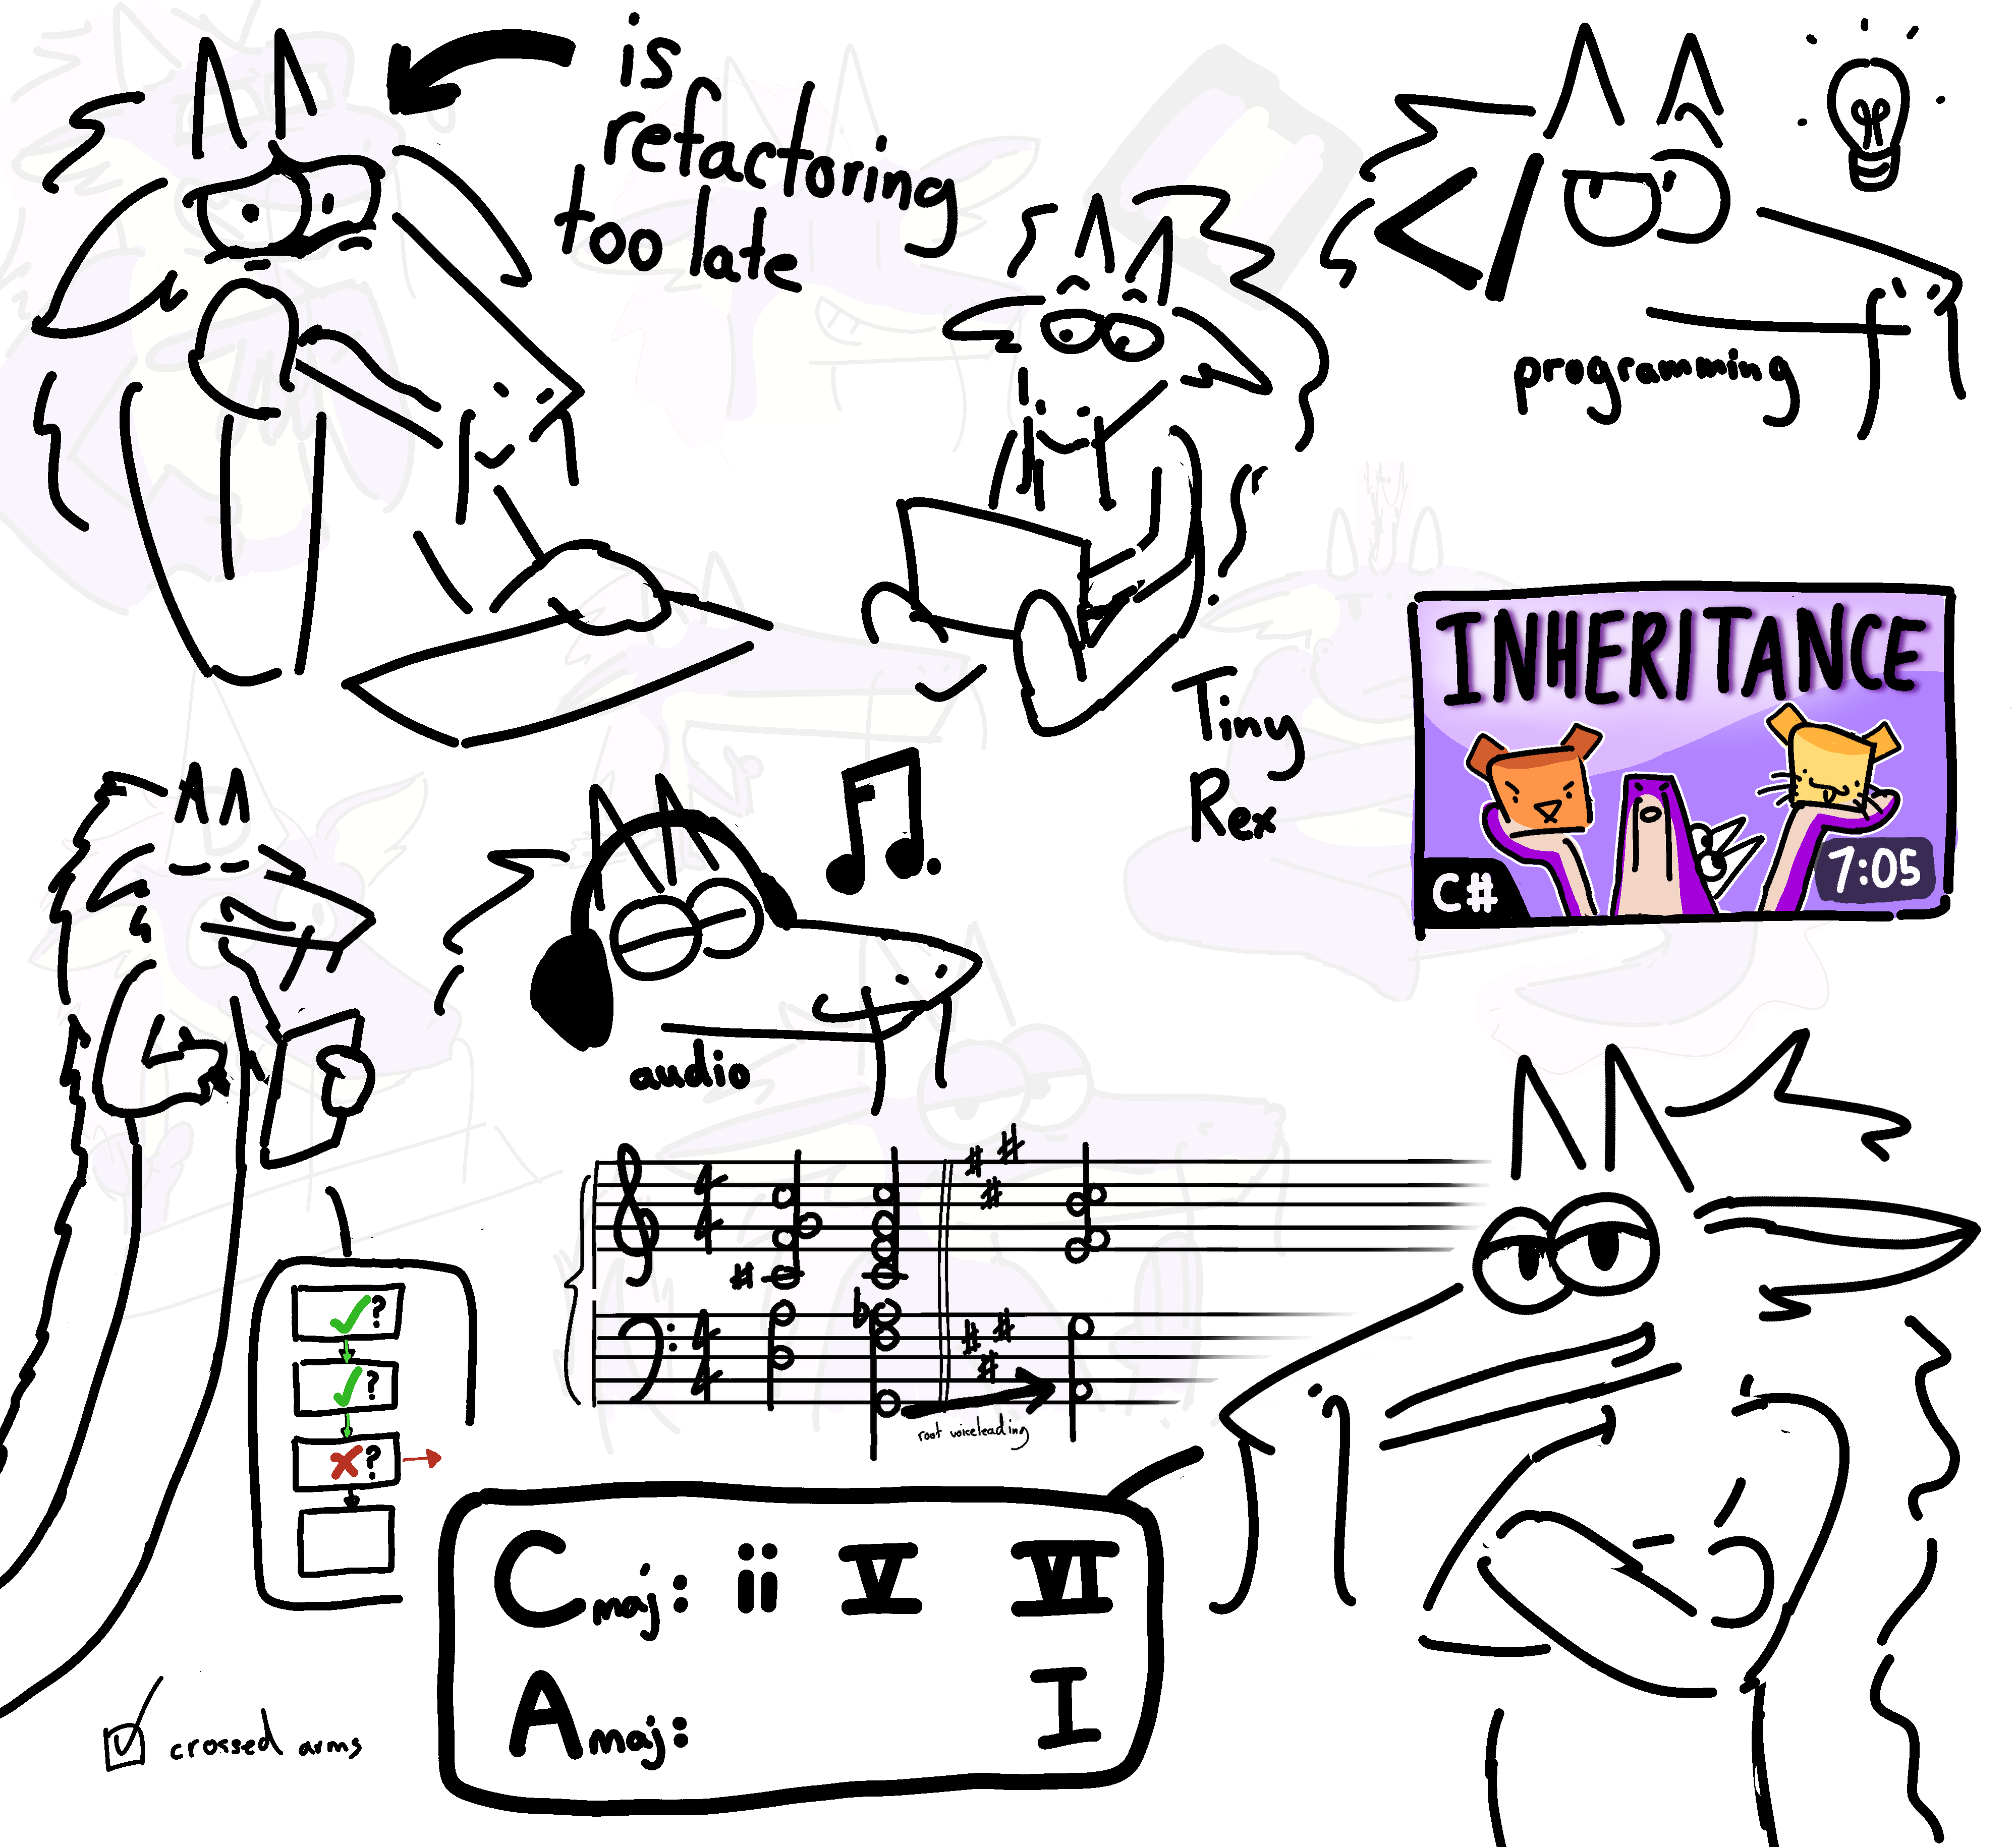 is
refactoring
too late
programming
Tiny
Rex
INHERITANCE
C#
7:05
audio
root voiceleading
✓?
✓?
✗?
Cmaj: ii V VI
Amaj: I
crossed arms